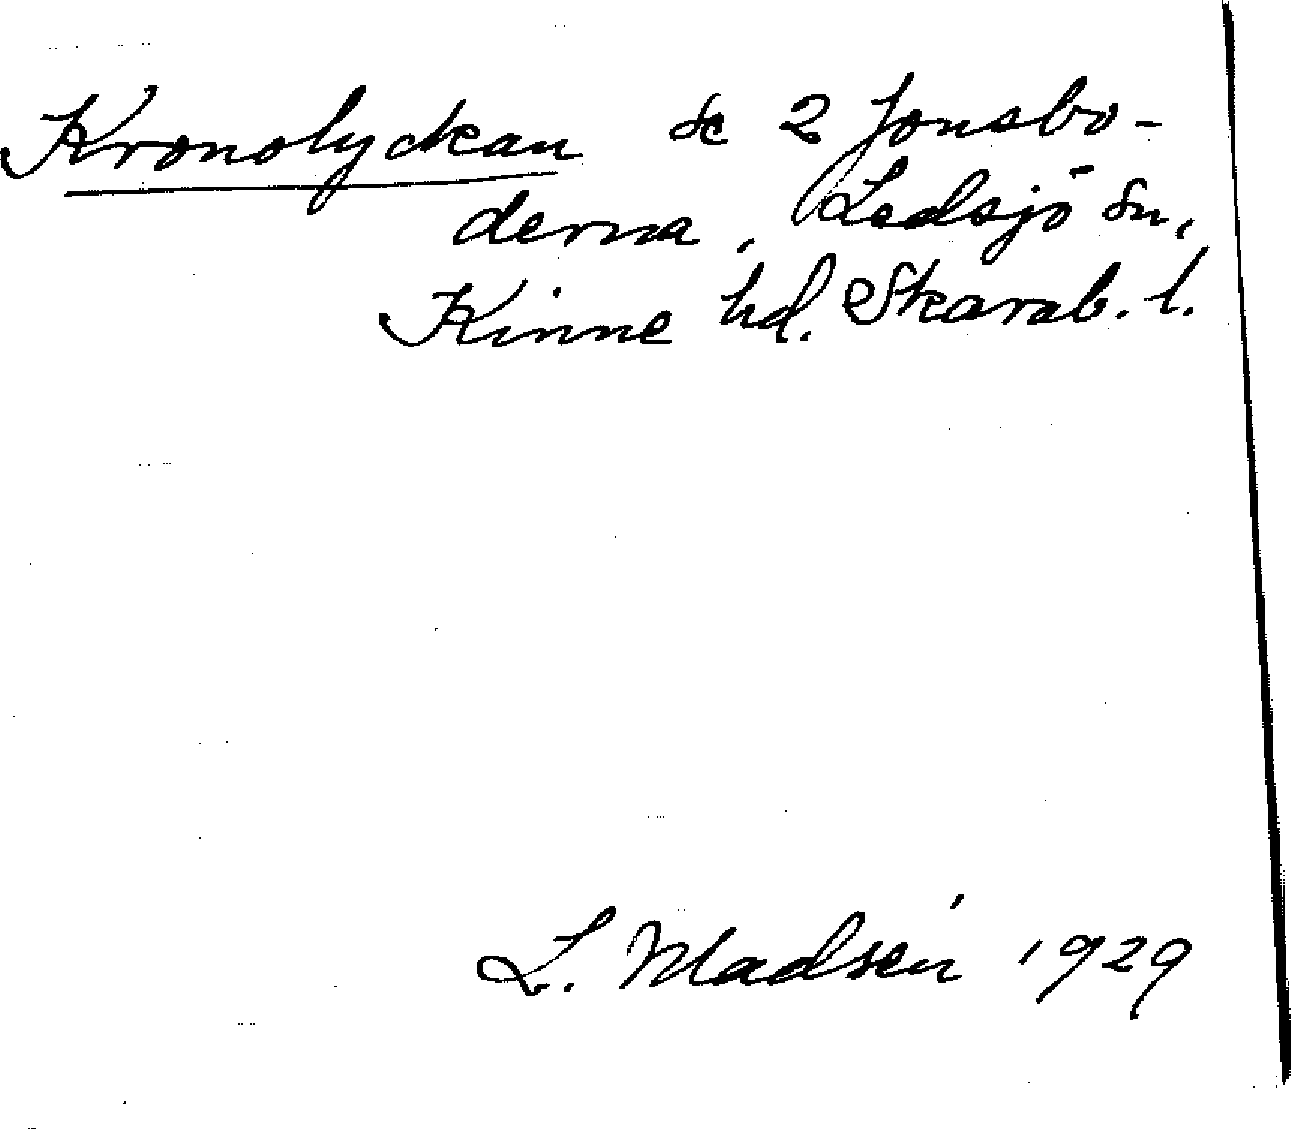 Kronolyckan se 2 Jonsbo-
derna, Ledsjö sn,
Kinne hd. Skarab. l.
L. Madsén 1929